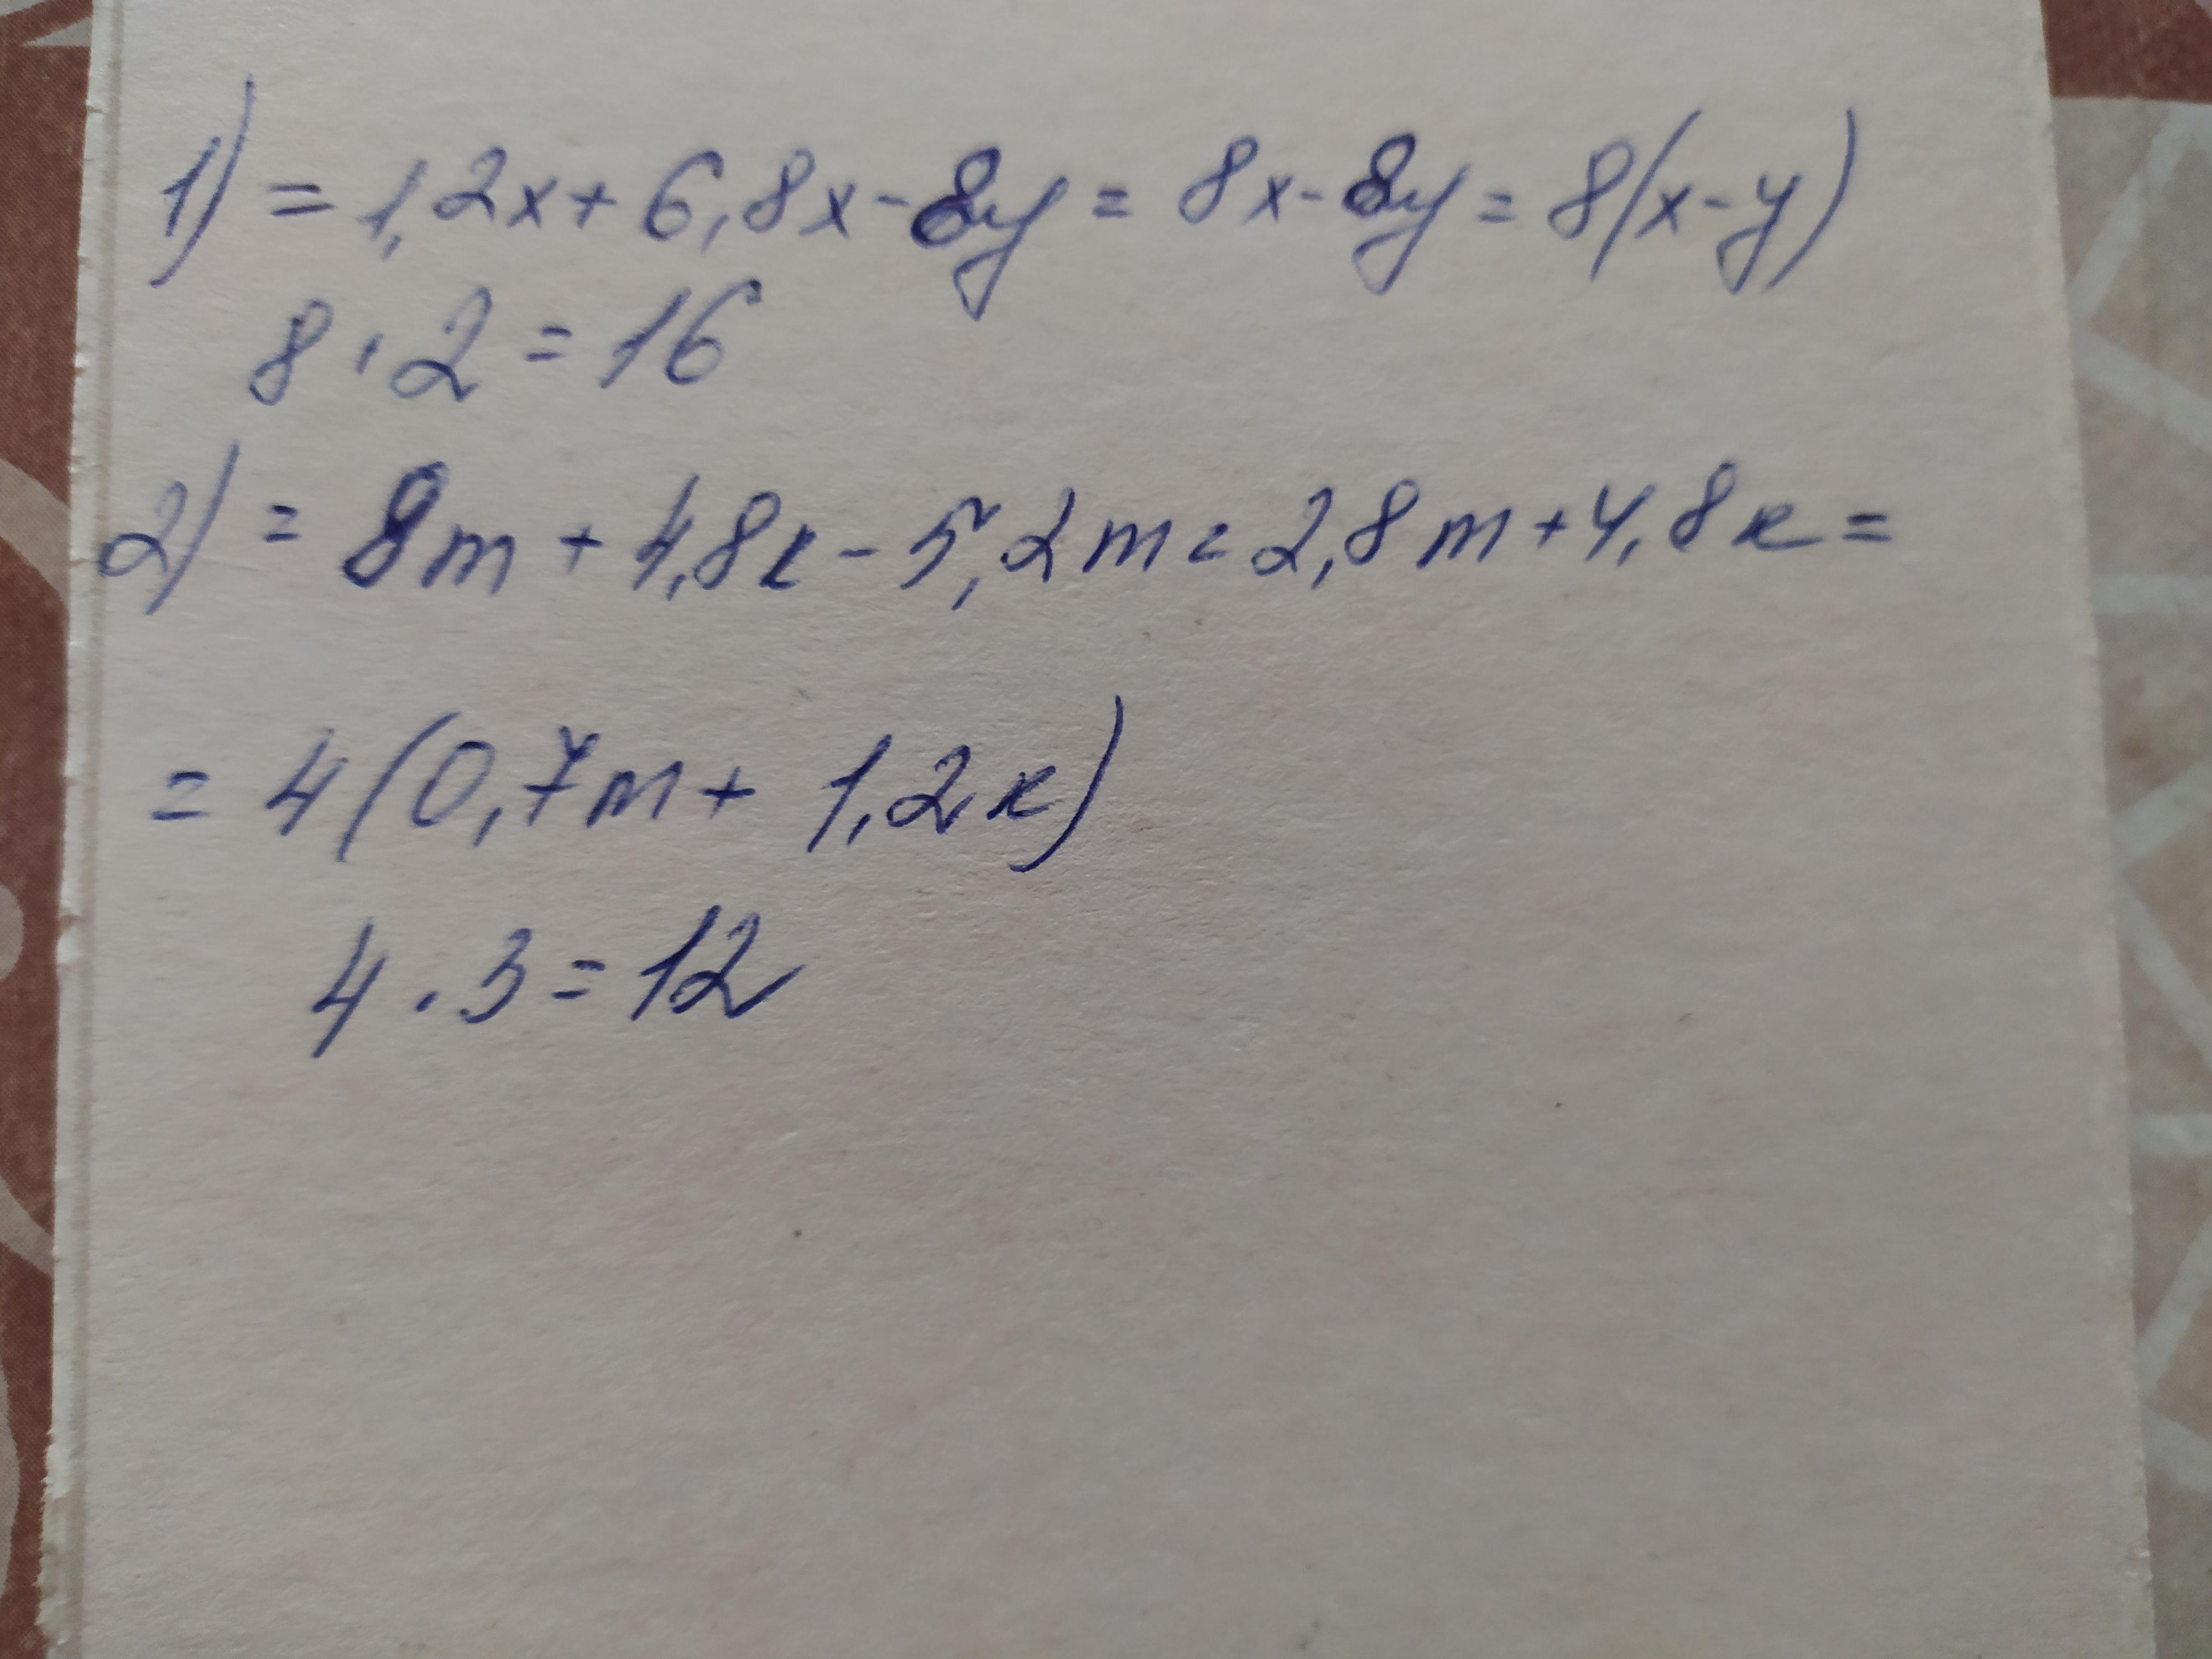 1) = 1,2x + 6,8x - 8y = 8x - 8y = 8(x - y)
8 · 2 = 16
2) = 8m + 4,8к - 5,2m = 2,8m + 4,8к =
= 4(0,7m + 1,2к)
4 · 3 = 12